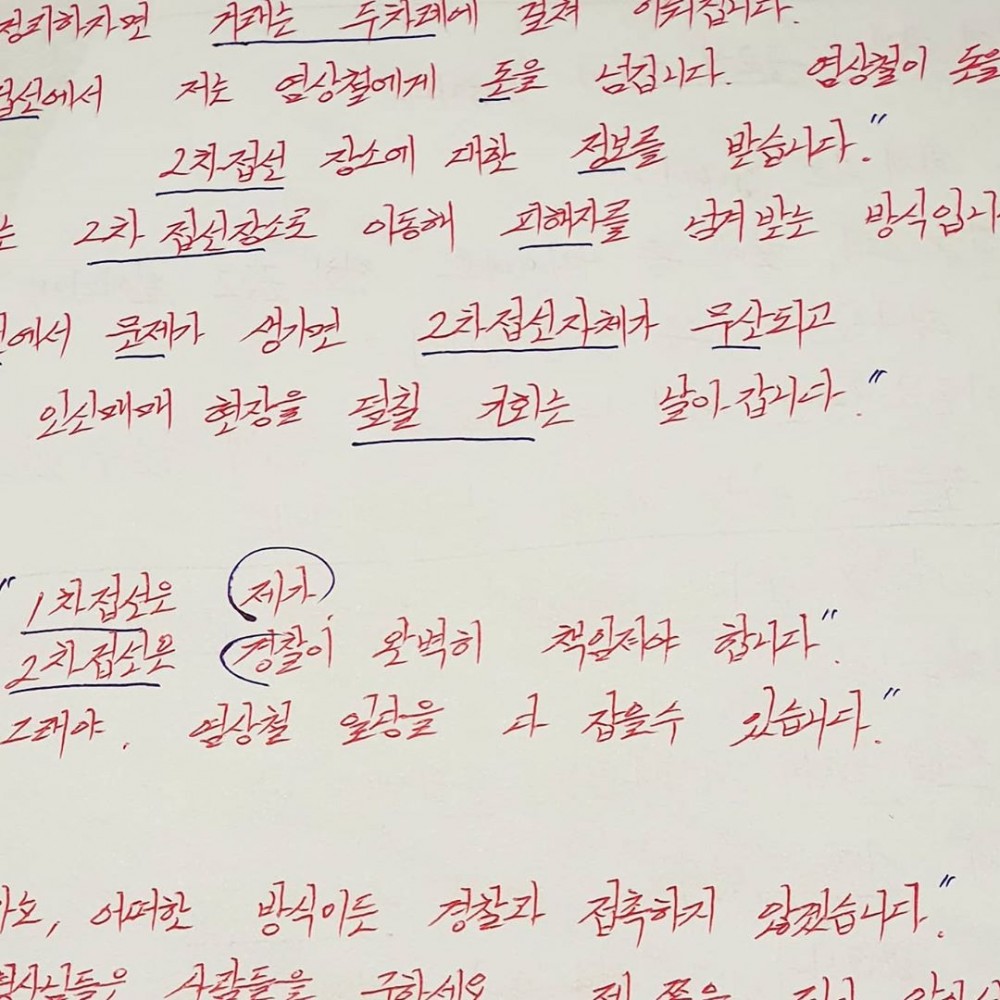 정리하자면 거래는 두차례에 걸쳐 이뤄집니다.
접선에서 저는 염상철에게 돈을 넘깁니다. 염상철이 돈을
2차접선 장소에 대한 정보를 받습니다."
는 2차 접선장소로 이동해 피해자를 넘겨받는 방식입니
에서 문제가 생기면 2차접선자체가 무산되고
인신매매 현장을 덮칠 기회는 날아갑니다."
"1차접선은 제가,
2차접선은 경찰이 완벽히 책임져야 합니다".
그래야, 염상철 일당을 다 잡을수 있습니다."
어떠한 방식이든 경찰과 접촉하지 않겠습니다."
형사님들은 사람들을 구하세요